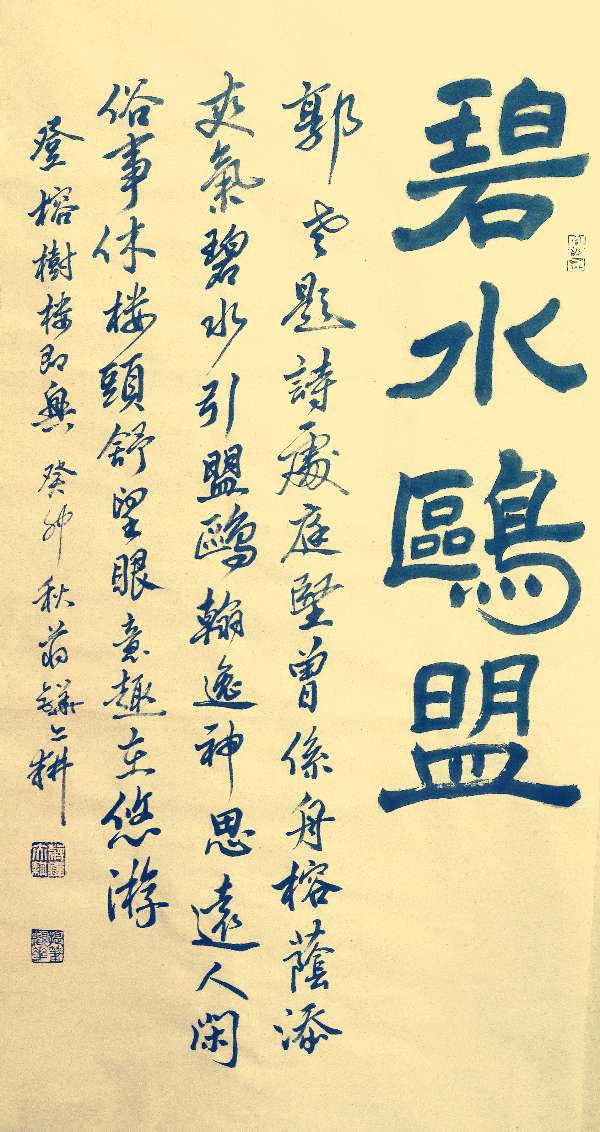 碧水鷗盟
郭老題詩處庭堅曾係舟榕蔭添
爽氣碧水引盟鷗翰逸神思遠人閑
俗事休楼頭舒望眼意趣在悠游
登榕樹楼即興 癸卯秋 耕